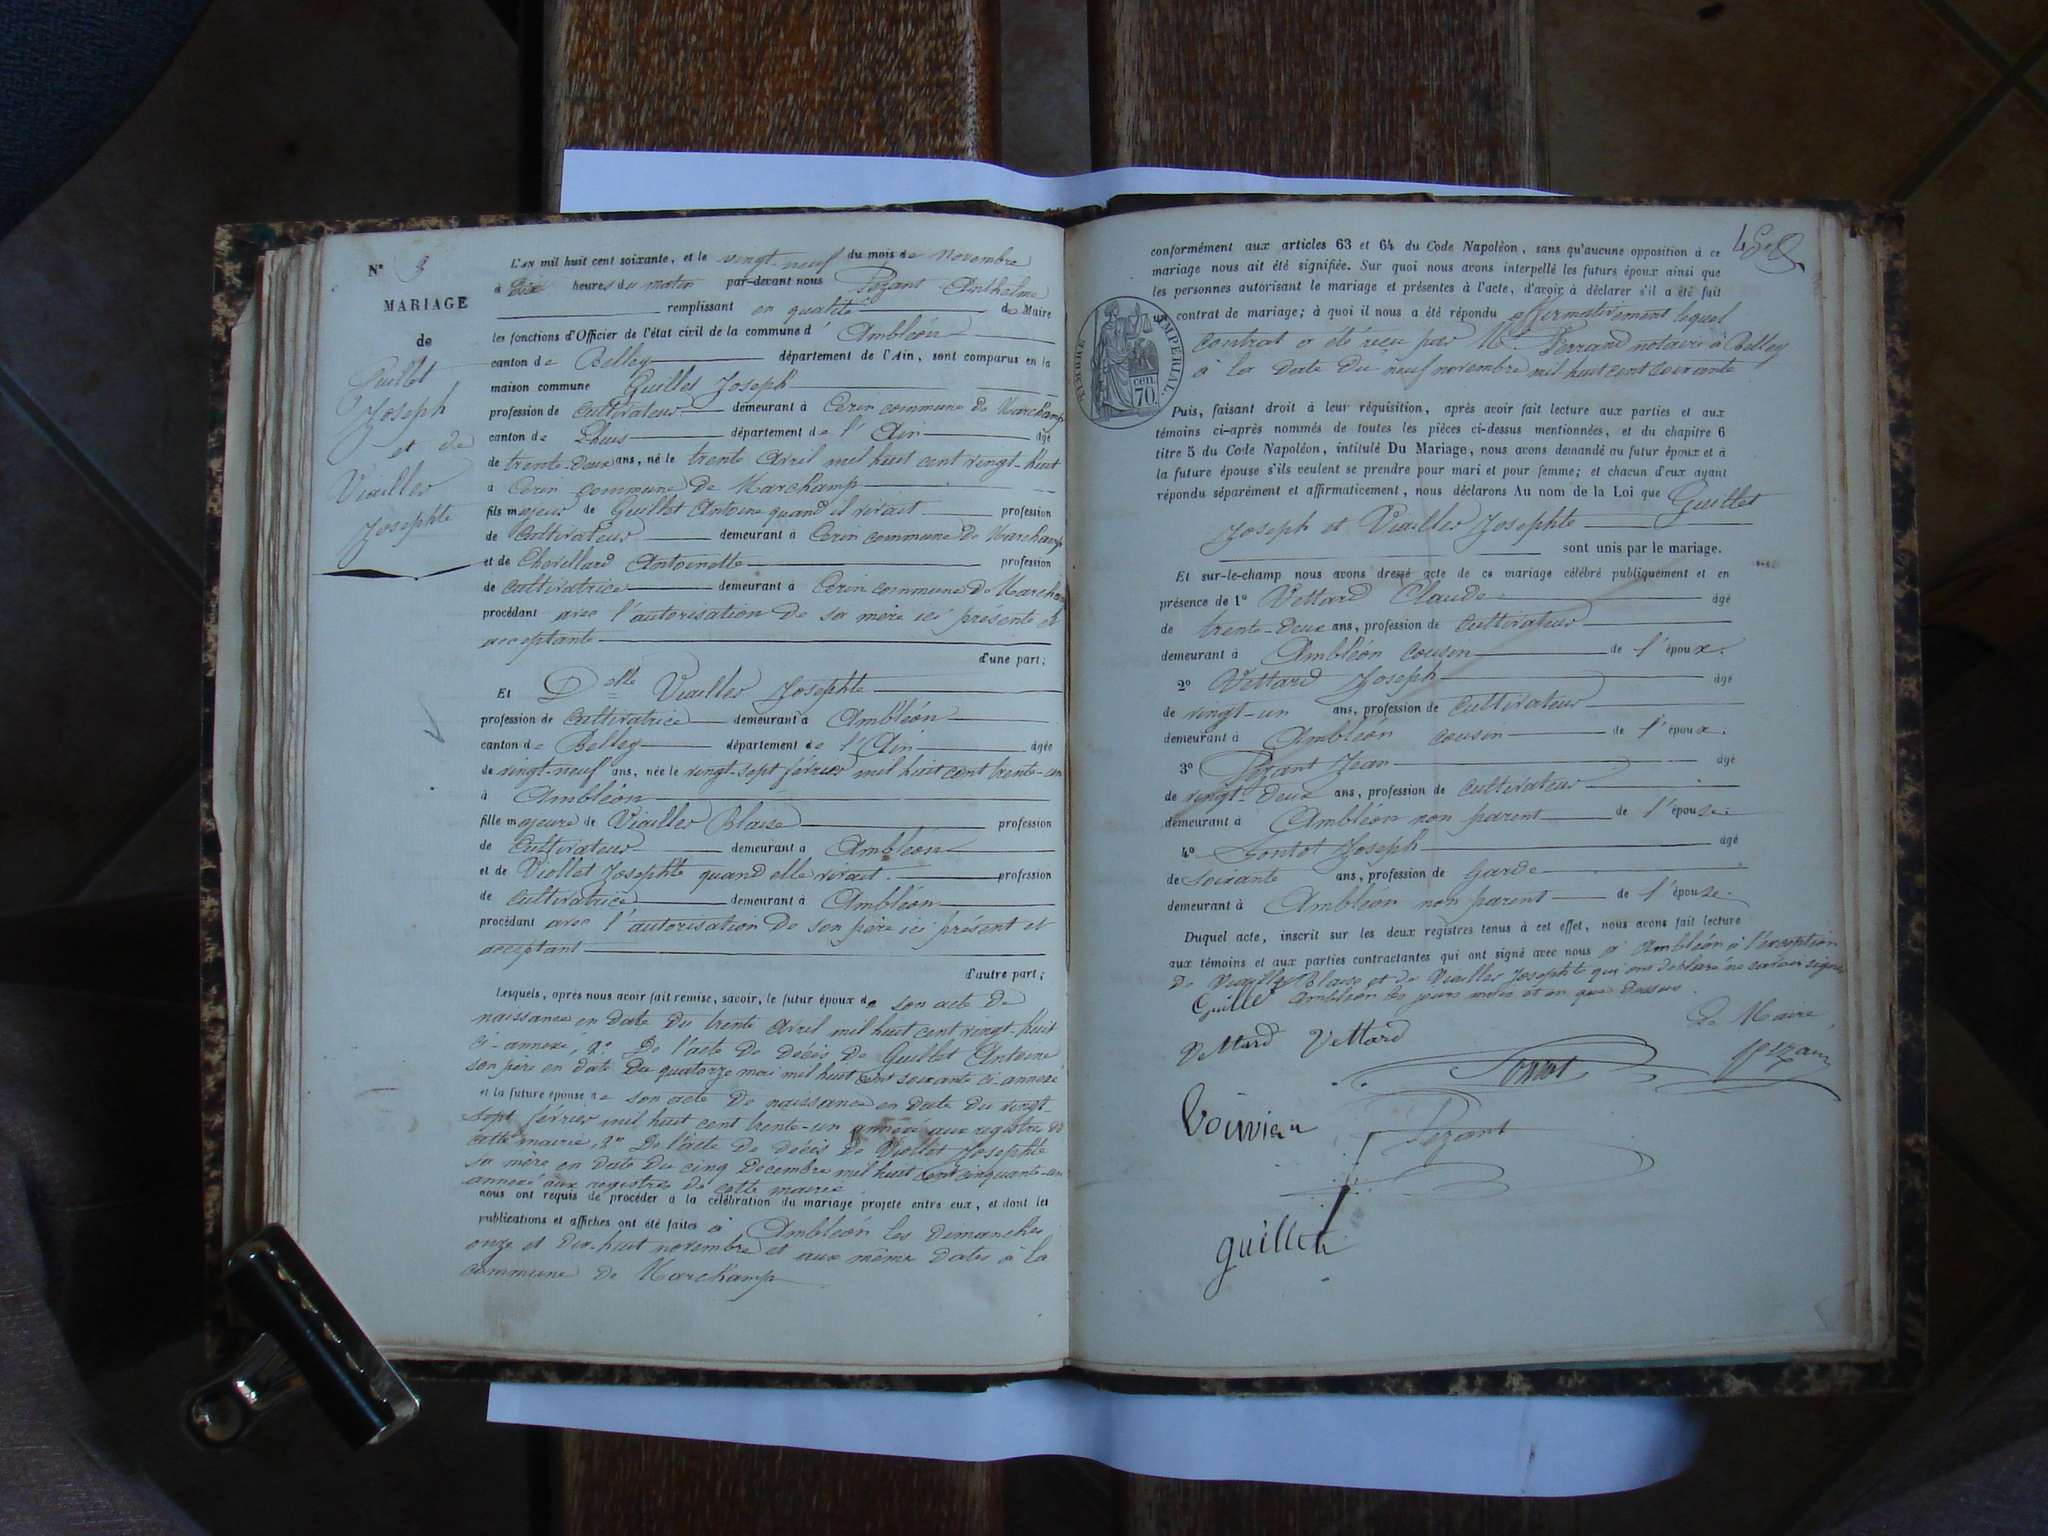 N° 3
MARIAGE
de
Guillet
Joseph
et de
Viallet
Josephte
L'AN mil huit cent soixante, et le vingt neuf du mois de novembre
à dix heures du matin par-devant nous Pezant Anthelme
remplissant en qualité de Maire
les fonctions d'Officier de l'état civil de la commune d' Ambléon
canton de Belley département de l'Ain, sont comparus en la
maison commune Guillet Joseph
profession de Cultivateur demeurant à Cerin commune de Marchamp
canton de Lhuis département de l' Ain âgé
de trente-deux ans, né le trente Avril mil huit cent vingt-huit
à Cerin commune de Marchamp
fils majeur de Guillet Antoine quand il vivait profession
de Cultivateur demeurant à Cerin commune de Marchamp
et de Chevillard Antoinette profession
de cultivatrice demeurant à Cerin commune de Marchamp
procédant avec l'autorisation de sa mère ici présente et
acceptante
d'une part;
Et Delle Viallet Josephte
profession de Cultivatrice demeurant à Ambléon
canton de Belley département de l'Ain âgée
de vingt-neuf ans, née le vingt-sept février mil huit cent trente-un
à Ambléon
fille majeure de Viallet Blaise profession
de Cultivateur demeurant à Ambléon
et de Viollet Josephte quand elle vivait. profession
de cultivatrice demeurant à Ambléon
procédant avec l'autorisation de son père ici présent et
acceptant
d'autre part;
Lesquels, après nous avoir fait remise, savoir, le futur époux de son acte de
naissance en date du trente avril mil huit cent vingt-huit
ci-annexé, 2° De l'acte de décès de Guillet Antoine
son père en date du quatorze mai mil huit cent soixante ci-annexé
et la future épouse de son acte de naissance en date du vingt-
sept février mil huit cent trente-un annexé aux registres de
cette mairie, 2° De l'acte de décès de Viollet Josephte
sa mère en date du cinq Decembre mil huit cent cinquante-un
annexé aux registres de cette mairie
nous ont requis de procéder à la célébration du mariage projeté entre eux, et dont les
publications et affiches ont été faites à Ambléon les dimanches
onze et dix-huit novembre et aux même dates à la
commune de Marchamp
conformément aux articles 63 et 64 du Code Napoléon, sans qu'aucune opposition à ce
mariage nous ait été signifiée. Sur quoi nous avons interpellé les futurs époux ainsi que
les personnes autorisant le mariage et présentes à l'acte, d'avoir à déclarer s'il a été fait
contrat de mariage; à quoi il nous a été répondu affirmativement lequel
contrat a été reçu par Me Ferrand notaire à Belley
à la date du neuf novembre mil huit cent soixante
TIMBRE IMPÉRIAL
70 cen.
Puis, faisant droit à leur réquisition, après avoir fait lecture aux parties et aux
témoins ci-après nommés de toutes les pièces ci-dessus mentionnées, et du chapitre 6
titre 5 du Code Napoléon, intitulé Du Mariage, nous avons demandé au futur époux et à
la future épouse s'ils veulent se prendre pour mari et pour femme; et chacun d'eux ayant
répondu séparément et affirmativement, nous déclarons Au nom de la Loi que Guillet
Joseph et Viallet Josephte
sont unis par le mariage.
Et sur-le-champ nous avons dressé acte de ce mariage célébré publiquement et en
présence de 1° Vettard Claude âgé
de trente-deux ans, profession de cultivateur
demeurant à Ambléon cousin de l'époux.
2° Vettard Joseph âgé
de vingt-un ans, profession de cultivateur
demeurant à Ambléon cousin de l'époux.
3° Pezant Jean âgé
de vingt-deux ans, profession de cultivateur
demeurant à Ambléon non parent de l'épouse.
4° Joseph âgé
de soixante ans, profession de Garde
demeurant à Ambléon non parent de l'épouse.
Duquel acte, inscrit sur les deux registres tenus à cet effet, nous avons fait lecture
aux témoins et aux parties contractantes qui ont signé avec nous à Ambléon à l'exception
de Viallet Blaise et de Viallet Josephte qui ont déclaré ne savoir signer
Guillet Ambléon les jour mois et an que dessus.
Le Maire
Vettard Vettard
Pezant
Pezant
guillet